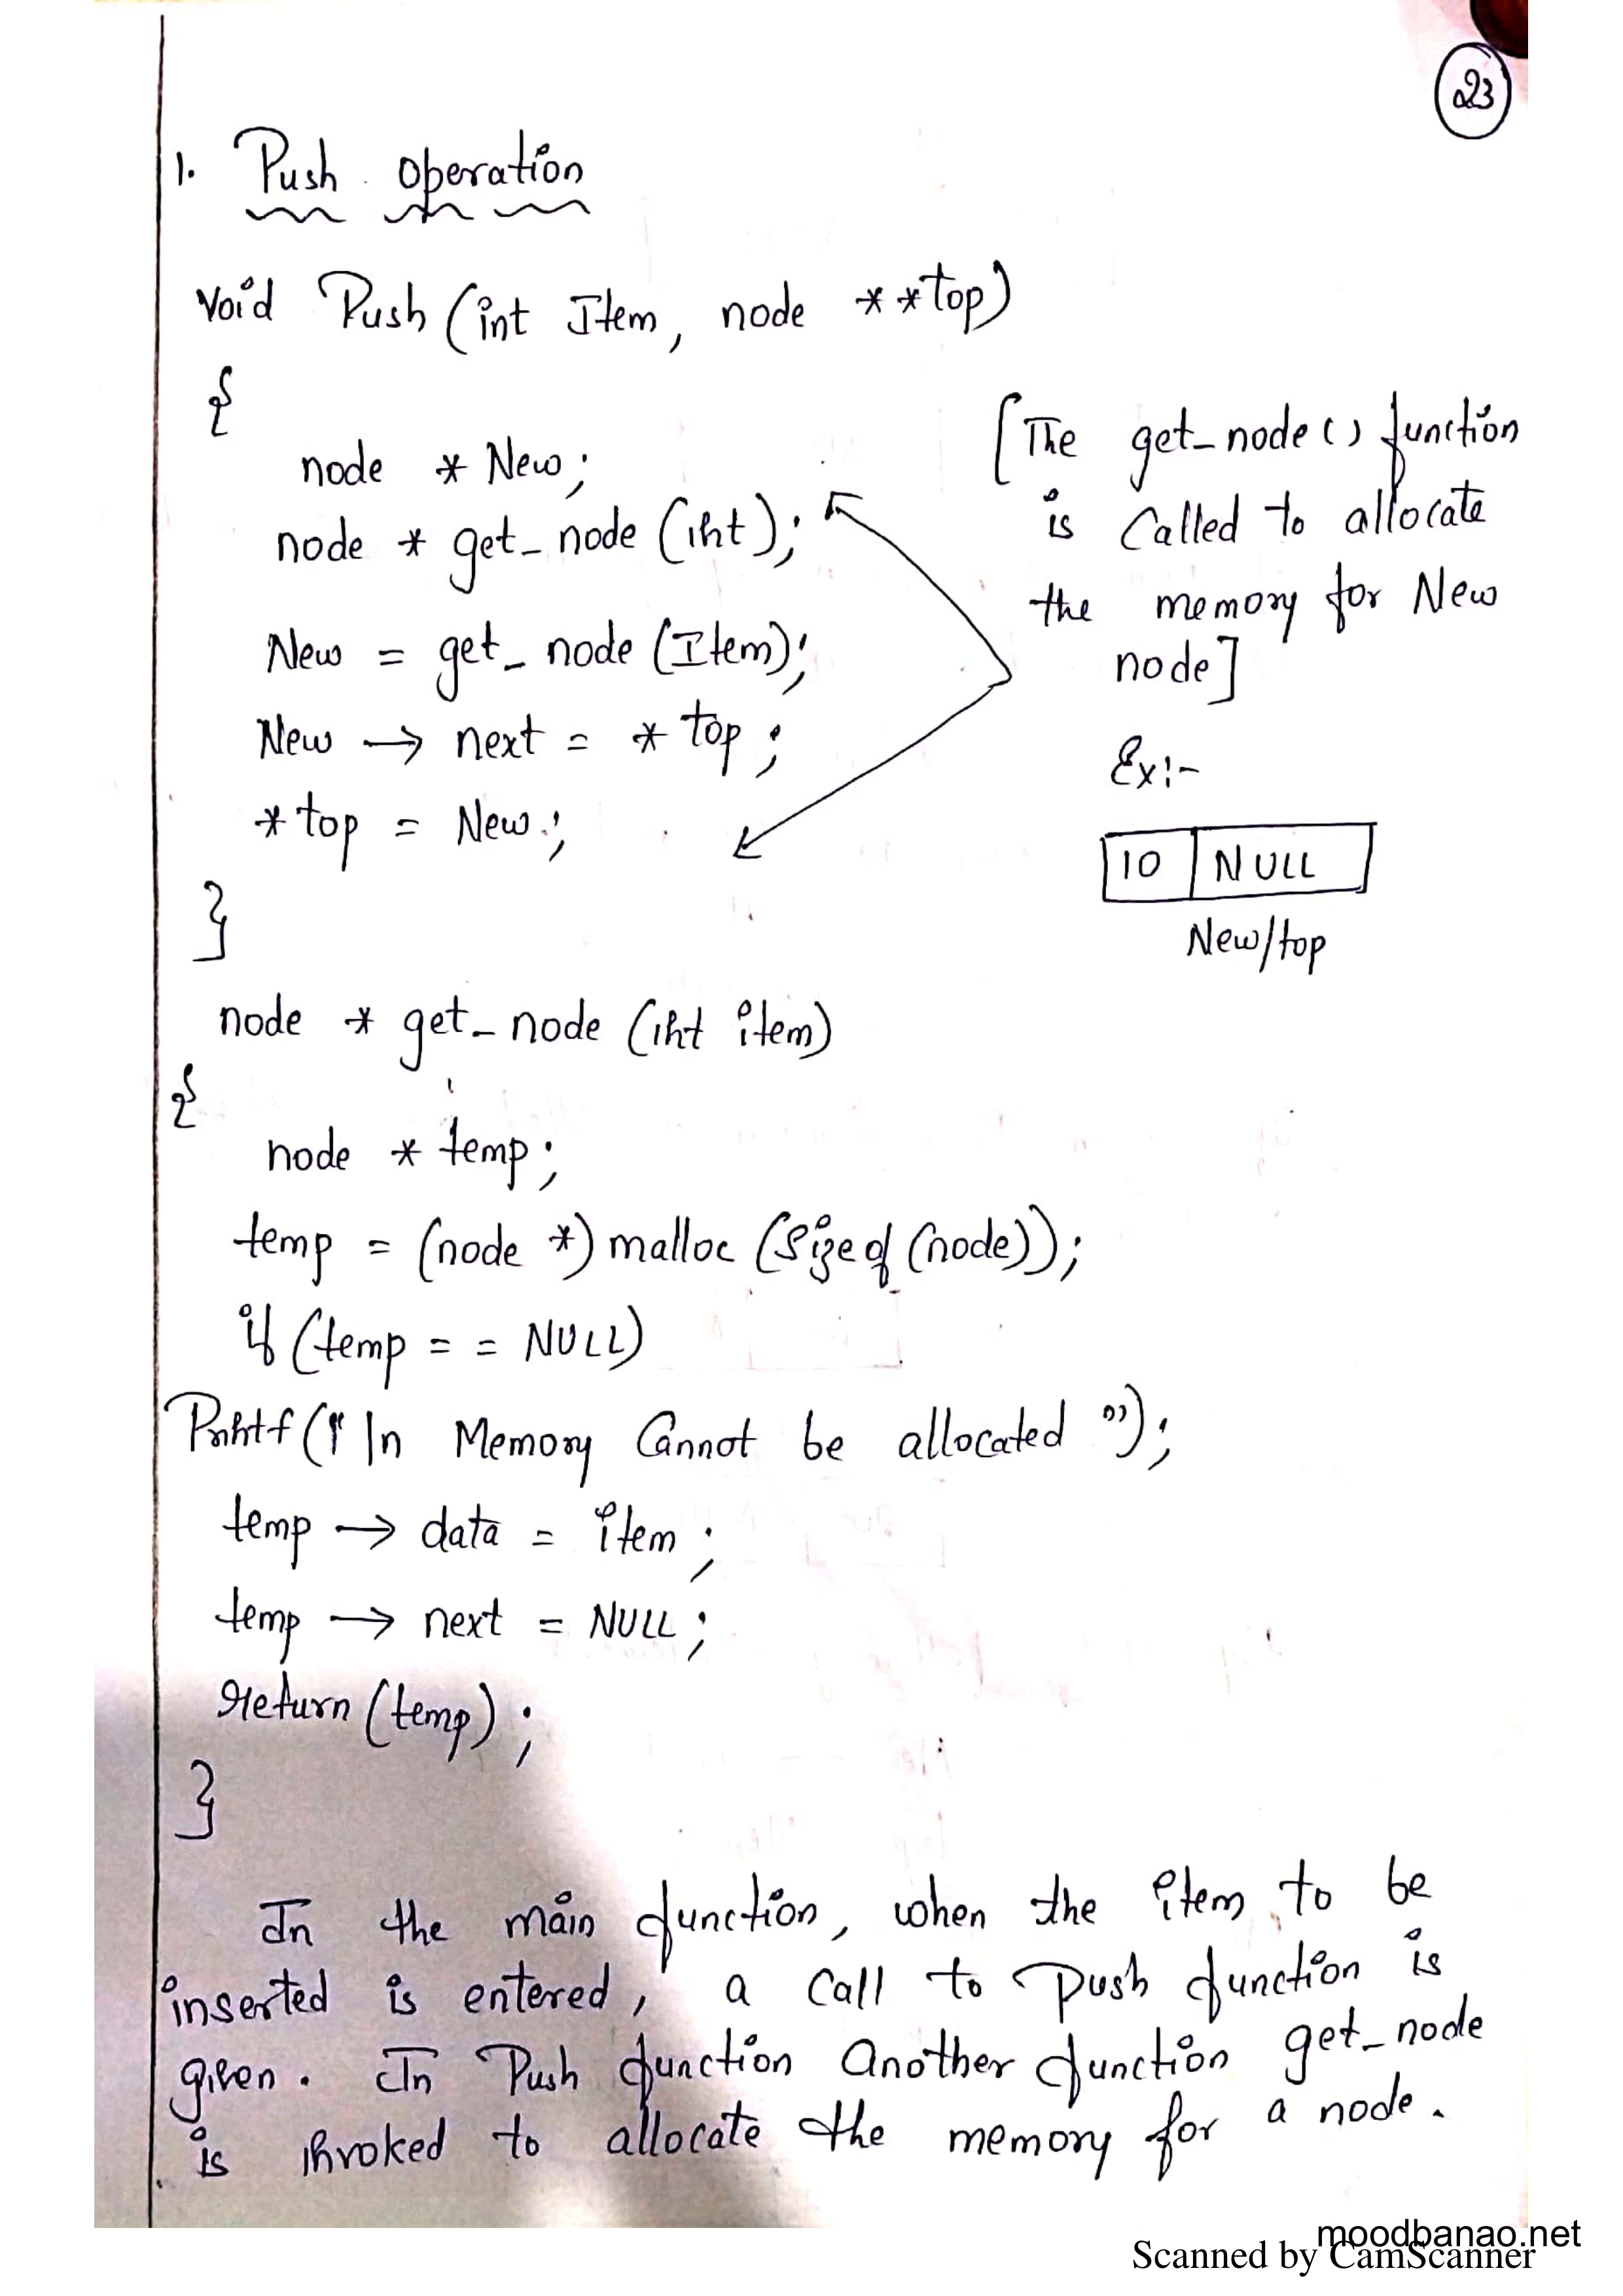 23
1. Push operation
Void Push (int Item, node **top)
{
node * New;
node * get_node (int);
New = get_node (Item);
New → next = * top;
*top = New;
}
[The get_node() function
is Called to allocate
the memory for New
node]
Ex:-
10 NULL
New/top
node * get_node (int item)
{
node * temp;
temp = (node *) malloc (sizeof (node));
if (temp = = NULL)
Printf (" \n Memory Cannot be allocated ");
temp → data = item;
temp → next = NULL;
return (temp);
}
In the main function, when the item to be
inserted is entered, a call to push function is
given. In Push function another function get_node
is invoked to allocate the memory for a node.
moodbanao.net
Scanned by CamScanner